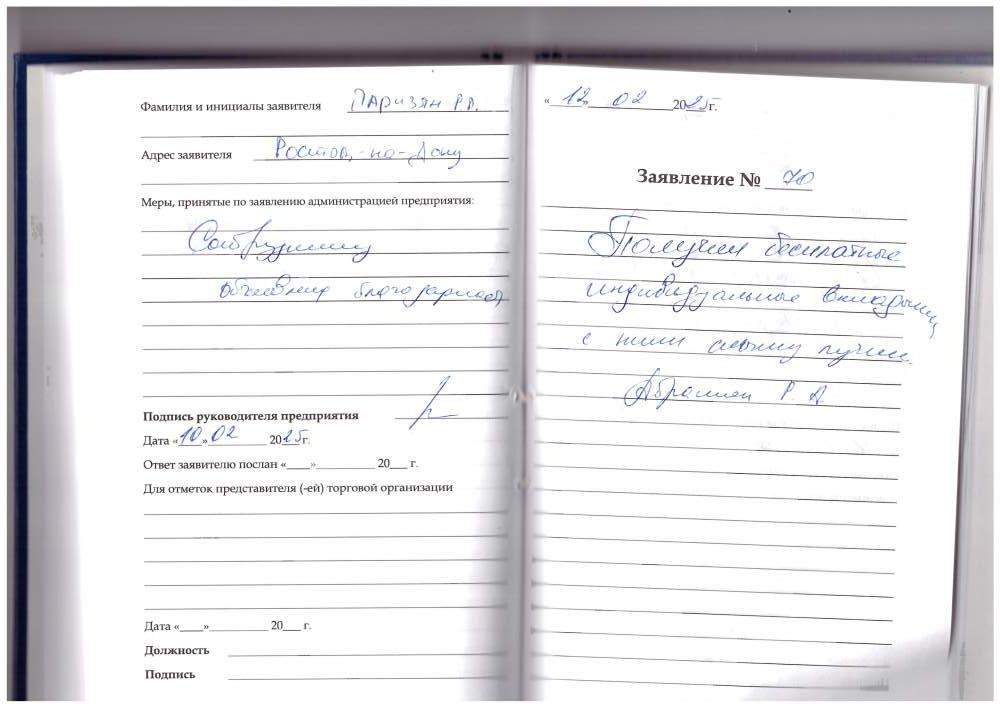 Фамилия и инициалы заявителя Паризян Р.А.
Адрес заявителя Ростов-на-Дону
Меры, принятые по заявлению администрацией предприятия:
Сотруднику
объявлена благодарность
Подпись руководителя предприятия
Дата «10» 02 2025г.
Ответ заявителю послан «____»__________ 20___ г.
Для отметок представителя (-ей) торговой организации
Дата «____»__________ 20___ г.
Должность
Подпись
«12» 02 2025г.
Заявление № 70
Получил бесплатные
индивидуальные вкладыши,
с ними слышу лучше.
Р. А